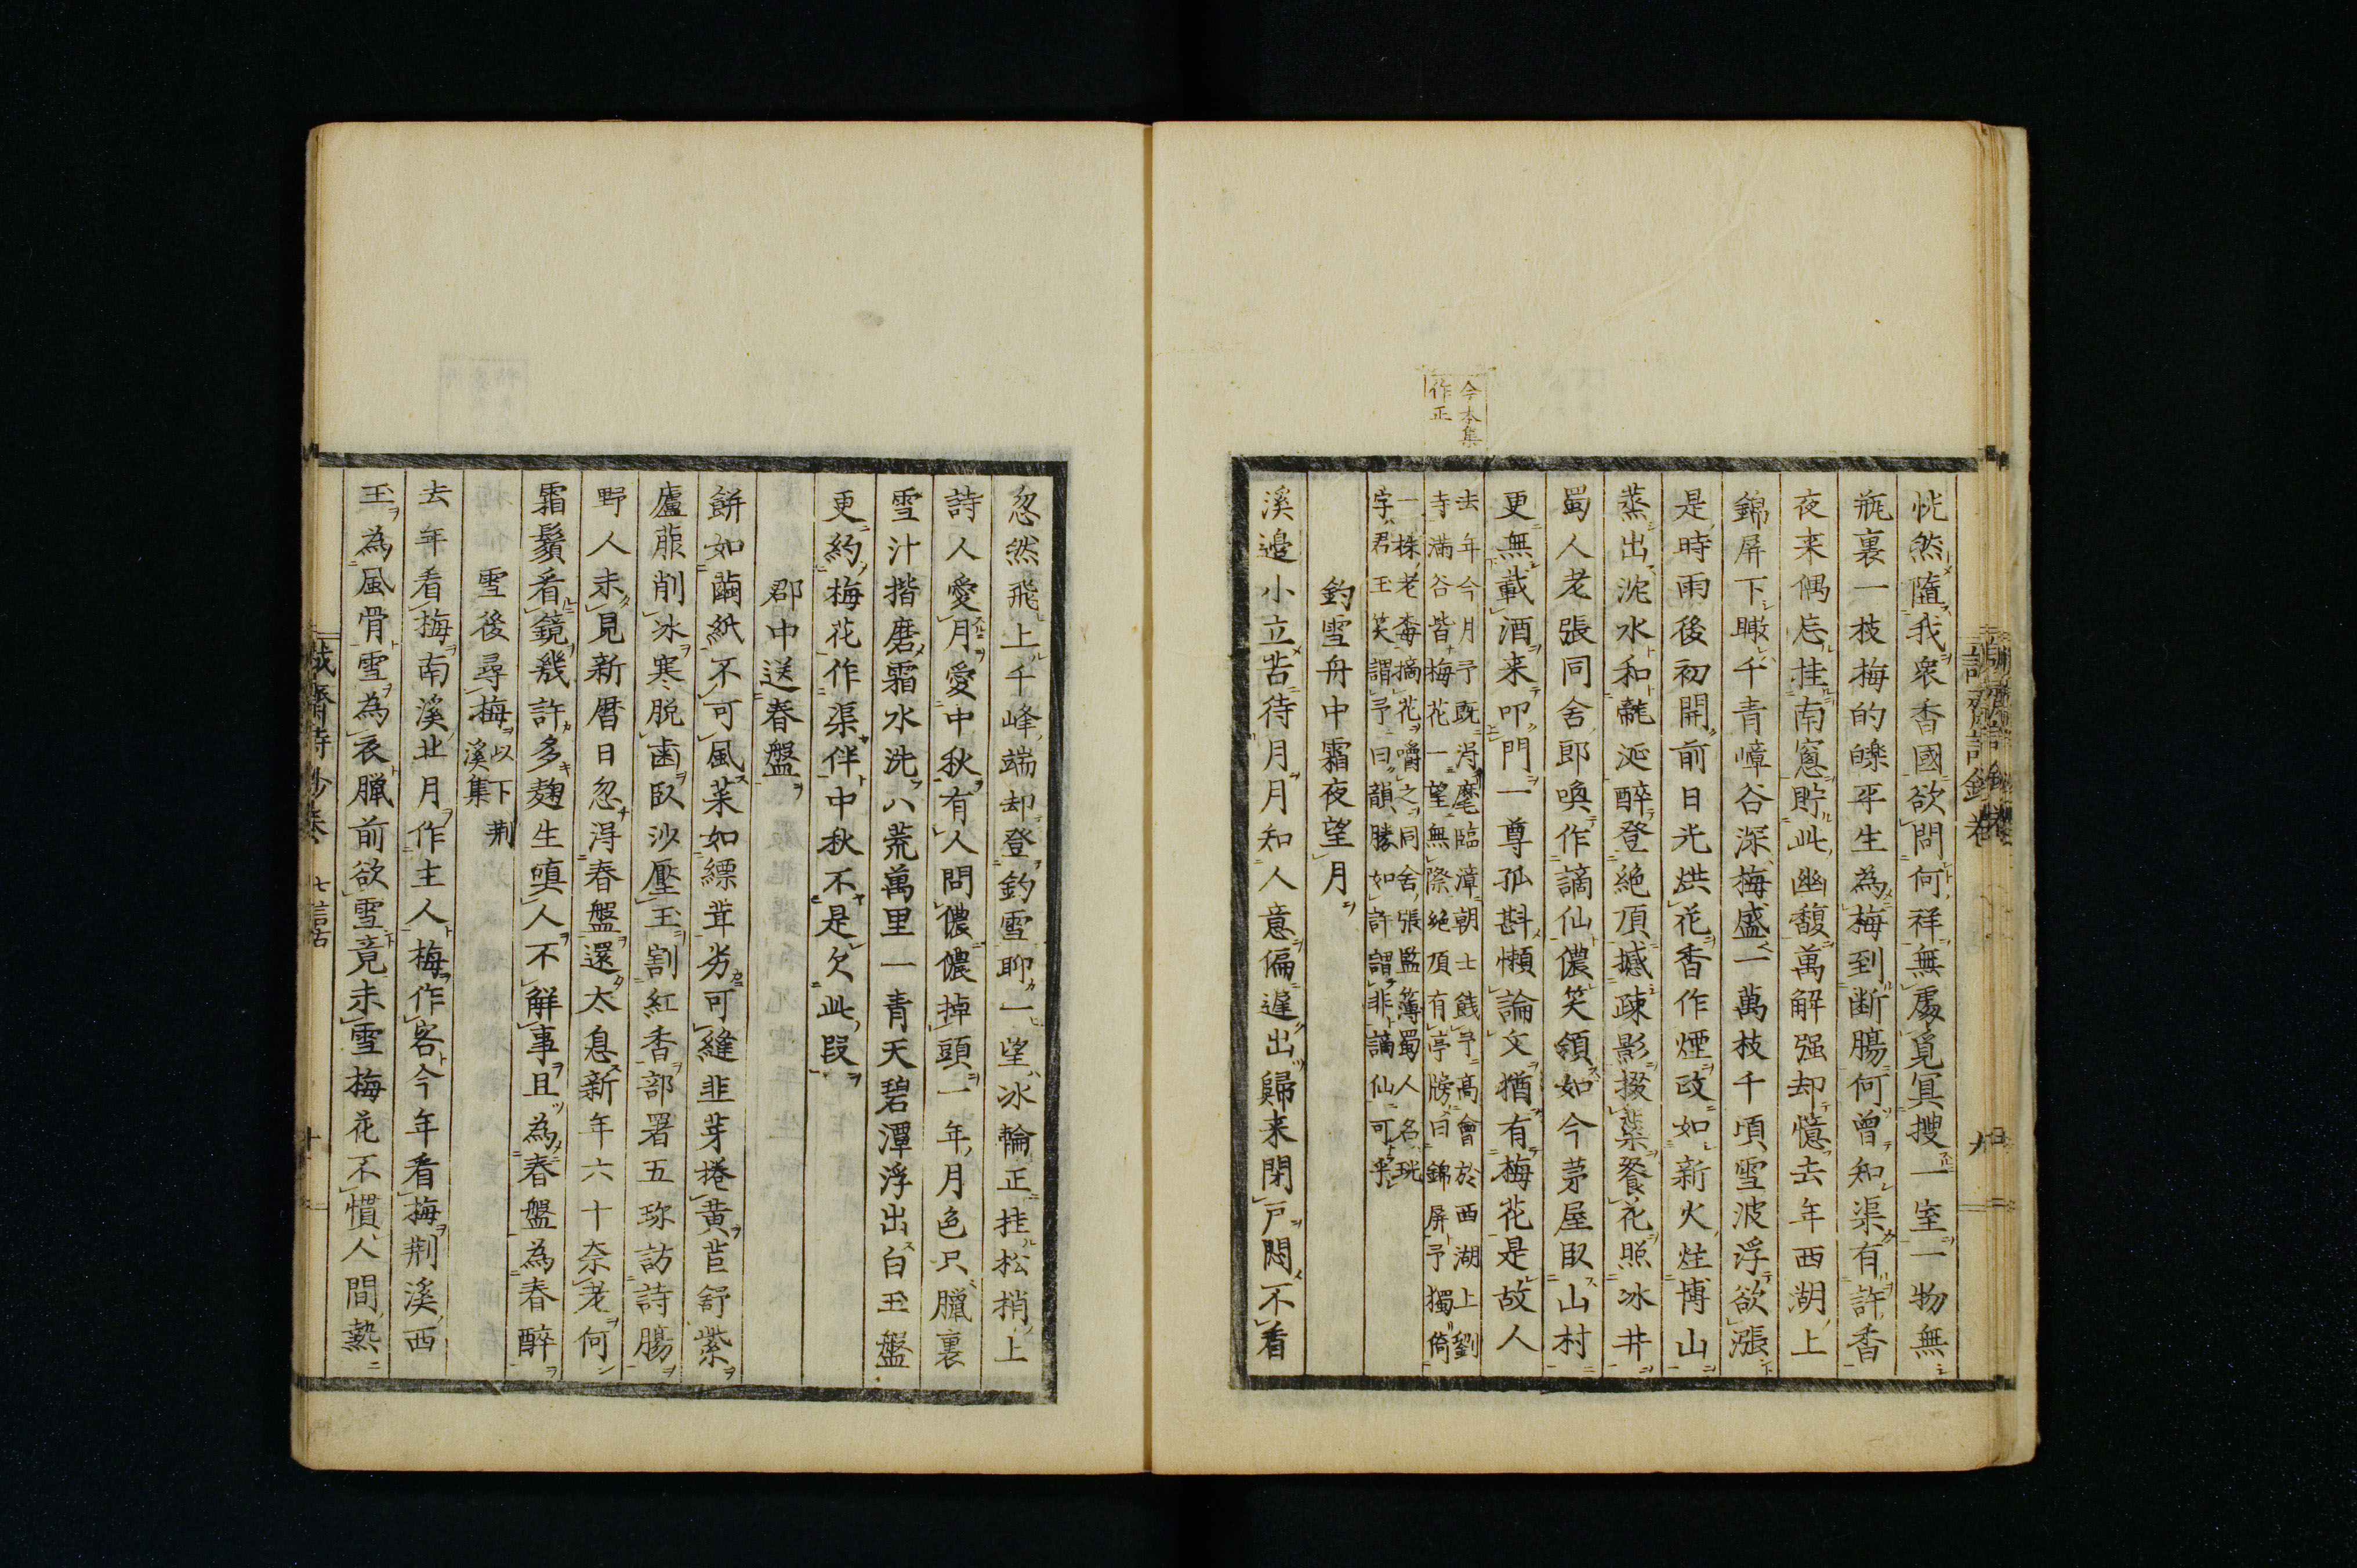 今本集
作正
恍然隨我衆香國欲問何祥無處覓冥搜一室一物無
瓶裏一枝梅的皪平生為梅到断腸何曾知渠有許香
夜来偶忘挂南窓貯此幽馥萬解强却憶去年西湖上
錦屏下瞰千青嶂谷深梅盛一萬枝千頃雪波浮欲漲
是時雨後初開前日光烘花香作煙政如新火炷博山
蒸出沈水和龍涎醉登絶頂撼疎影掇蘂餐花照冰井
蜀人老張同舍郎喚作謫仙儂笑領如今茅屋臥山村
更無載酒来叩門一尊孤斟懶論文猶有梅花是故人
去年今月予既得麾臨漳朝士餞予高會於西湖上劉
寺満谷皆梅花一望無際絶頂有亭牓曰錦屏予獨倚
一株老梅摘花嚼之同舍張監簿蜀人名珖
字君玉笑謂予曰韻勝如許謂非謫仙可乎
釣雪舟中霜夜望月
溪邊小立苦待月月知人意偏遲出歸来閉戸悶不看
忽然飛上千峰端却登釣雪聊一望冰輪正挂松梢上
詩人愛月愛中秋有人問儂儂掉頭一年月色只臘裏
雪汁揩磨霜水洗八荒萬里一青天碧潭浮出白玉盤
更約梅花作渠伴中秋不是欠此段
郡中送春盤
餅如繭紙不可風菜如縹茸劣可縫韭芽捲黄苣舒紫
廬菔削冰寒脱歯臥沙壓玉割紅香部署五珎訪詩腸
野人未見新暦日忽得春盤還太息新年六十奈老何
霜鬚看鏡幾許多麹生嗔人不解事且為春盤為春醉
雪後尋梅 以下荆
溪集
去年看梅南溪北月作主人梅作客今年看梅荆溪西
玉為風骨雪為衣臘前欲雪竟未雪梅花不慣人間熱
誠齋詩鈔卷 七言古 十
九